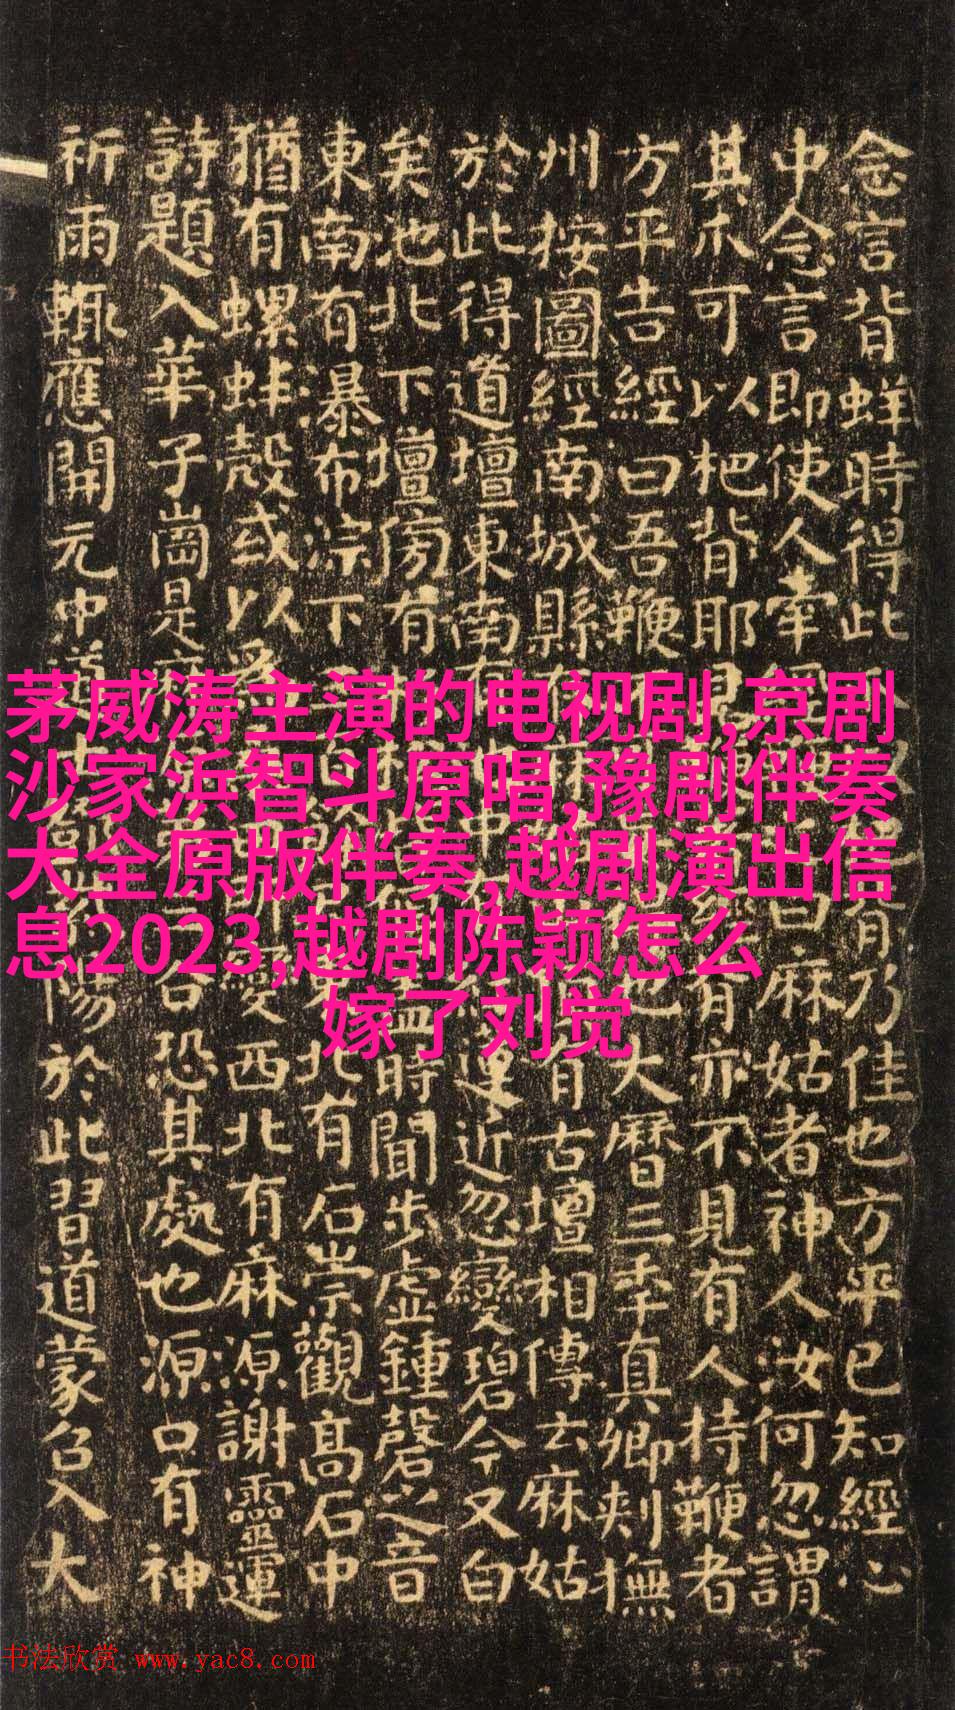 念言背蛘時得此乃佳也方平已知經心
中念言即使人牵曰麻姑者神人汝何忽謂
其爪可以把背耶見有亦不見有人持鞭者
方平告經曰吾鞭也大曆三年真卿刾撫
州按圖經南城縣有古壇相傳云麻姑
於此得道壇東南有中蓮近忽變碧今又白
矣池北下壇傍有時聞步虛鍾磬之音
東南有瀑布淙下三百北有石崇觀高石中
猶有螺蚌殼或以為所變西北有麻源謝靈運
詩題入華子崗是麻谷恐其處也源口有神
祈雨輒應開元中道士陽於此習道蒙召入大
茅威涛主演的电视剧,京剧
沙家浜智斗原唱,豫剧伴奏
大全原版伴奏,越剧演出信
息2023,越剧陈颖怎么
嫁了刘觉
书法欣赏 www.yac8.com